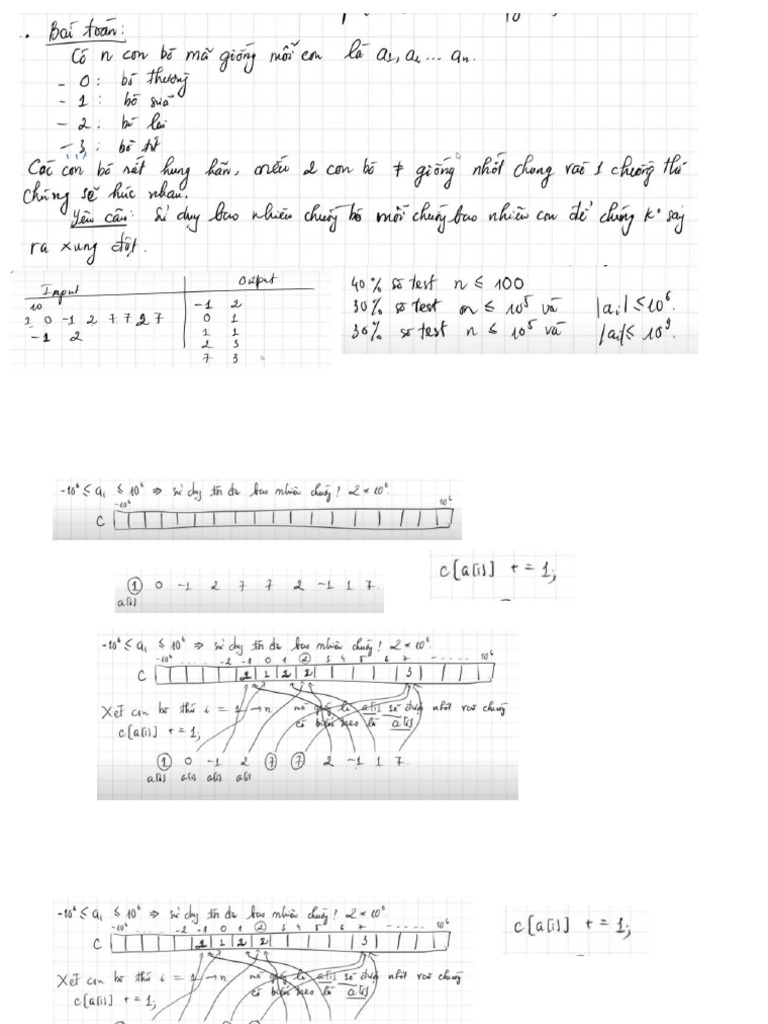 . Bài toán:
Có n con bò mã giống mỗi con là a1, a2 ... an.
- 0: bò thường
- 1: bò sữa
- 2: bò lai
- 3: bò tót
Các con bò rất hung hãn, nếu 2 con bò ≠ giống nhốt chung vào 1 chuồng thì
chúng sẽ húc nhau.
Yêu cầu: Sử dụng bao nhiêu chuồng bò mỗi chuồng bao nhiêu con để chúng k° xảy
ra xung đột.
Input Output
10
1 0 -1 2 7 7 2 7
-1 2
-1 2
0 1
1 1
2 3
7 3
40% số test n ≤ 100
30% số test n ≤ 10^5 và |ai| ≤ 10^6.
30% số test n ≤ 10^5 và |ai| ≤ 10^9.
-10^6 ≤ ai ≤ 10^6 => sử dụng tối đa bao nhiêu chuồng! 2*10^6.
-10^6 10^6
C
1 0 -1 2 7 7 2 -1 1 7.
a[i]
c[a[i]] += 1;
-10^6 ≤ ai ≤ 10^6 => sử dụng tối đa bao nhiêu chuồng! 2*10^6.
-10^6 ..... -2 -1 0 1 2 3 4 5 6 7 ..... 10^6
C 2 1 2 2 3
Xét con bò thứ i = 1 → n mã giống là a[i] sẽ được nhốt vào chuồng
c[a[i]] += 1; có biển treo là a[i]
1 0 -1 2 7 7 2 -1 1 7.
a[i] a[i] a[i] a[i]
-10^6 ≤ ai ≤ 10^6 => sử dụng tối đa bao nhiêu chuồng! 2*10^6.
-10^6 ..... -2 -1 0 1 2 3 4 5 6 7 ..... 10^6
C 2 1 2 2 3
c[a[i]] += 1;
Xét con bò thứ i = 1 → n mã giống là a[i] sẽ được nhốt vào chuồng
c[a[i]] += 1; có biển treo là a[i]